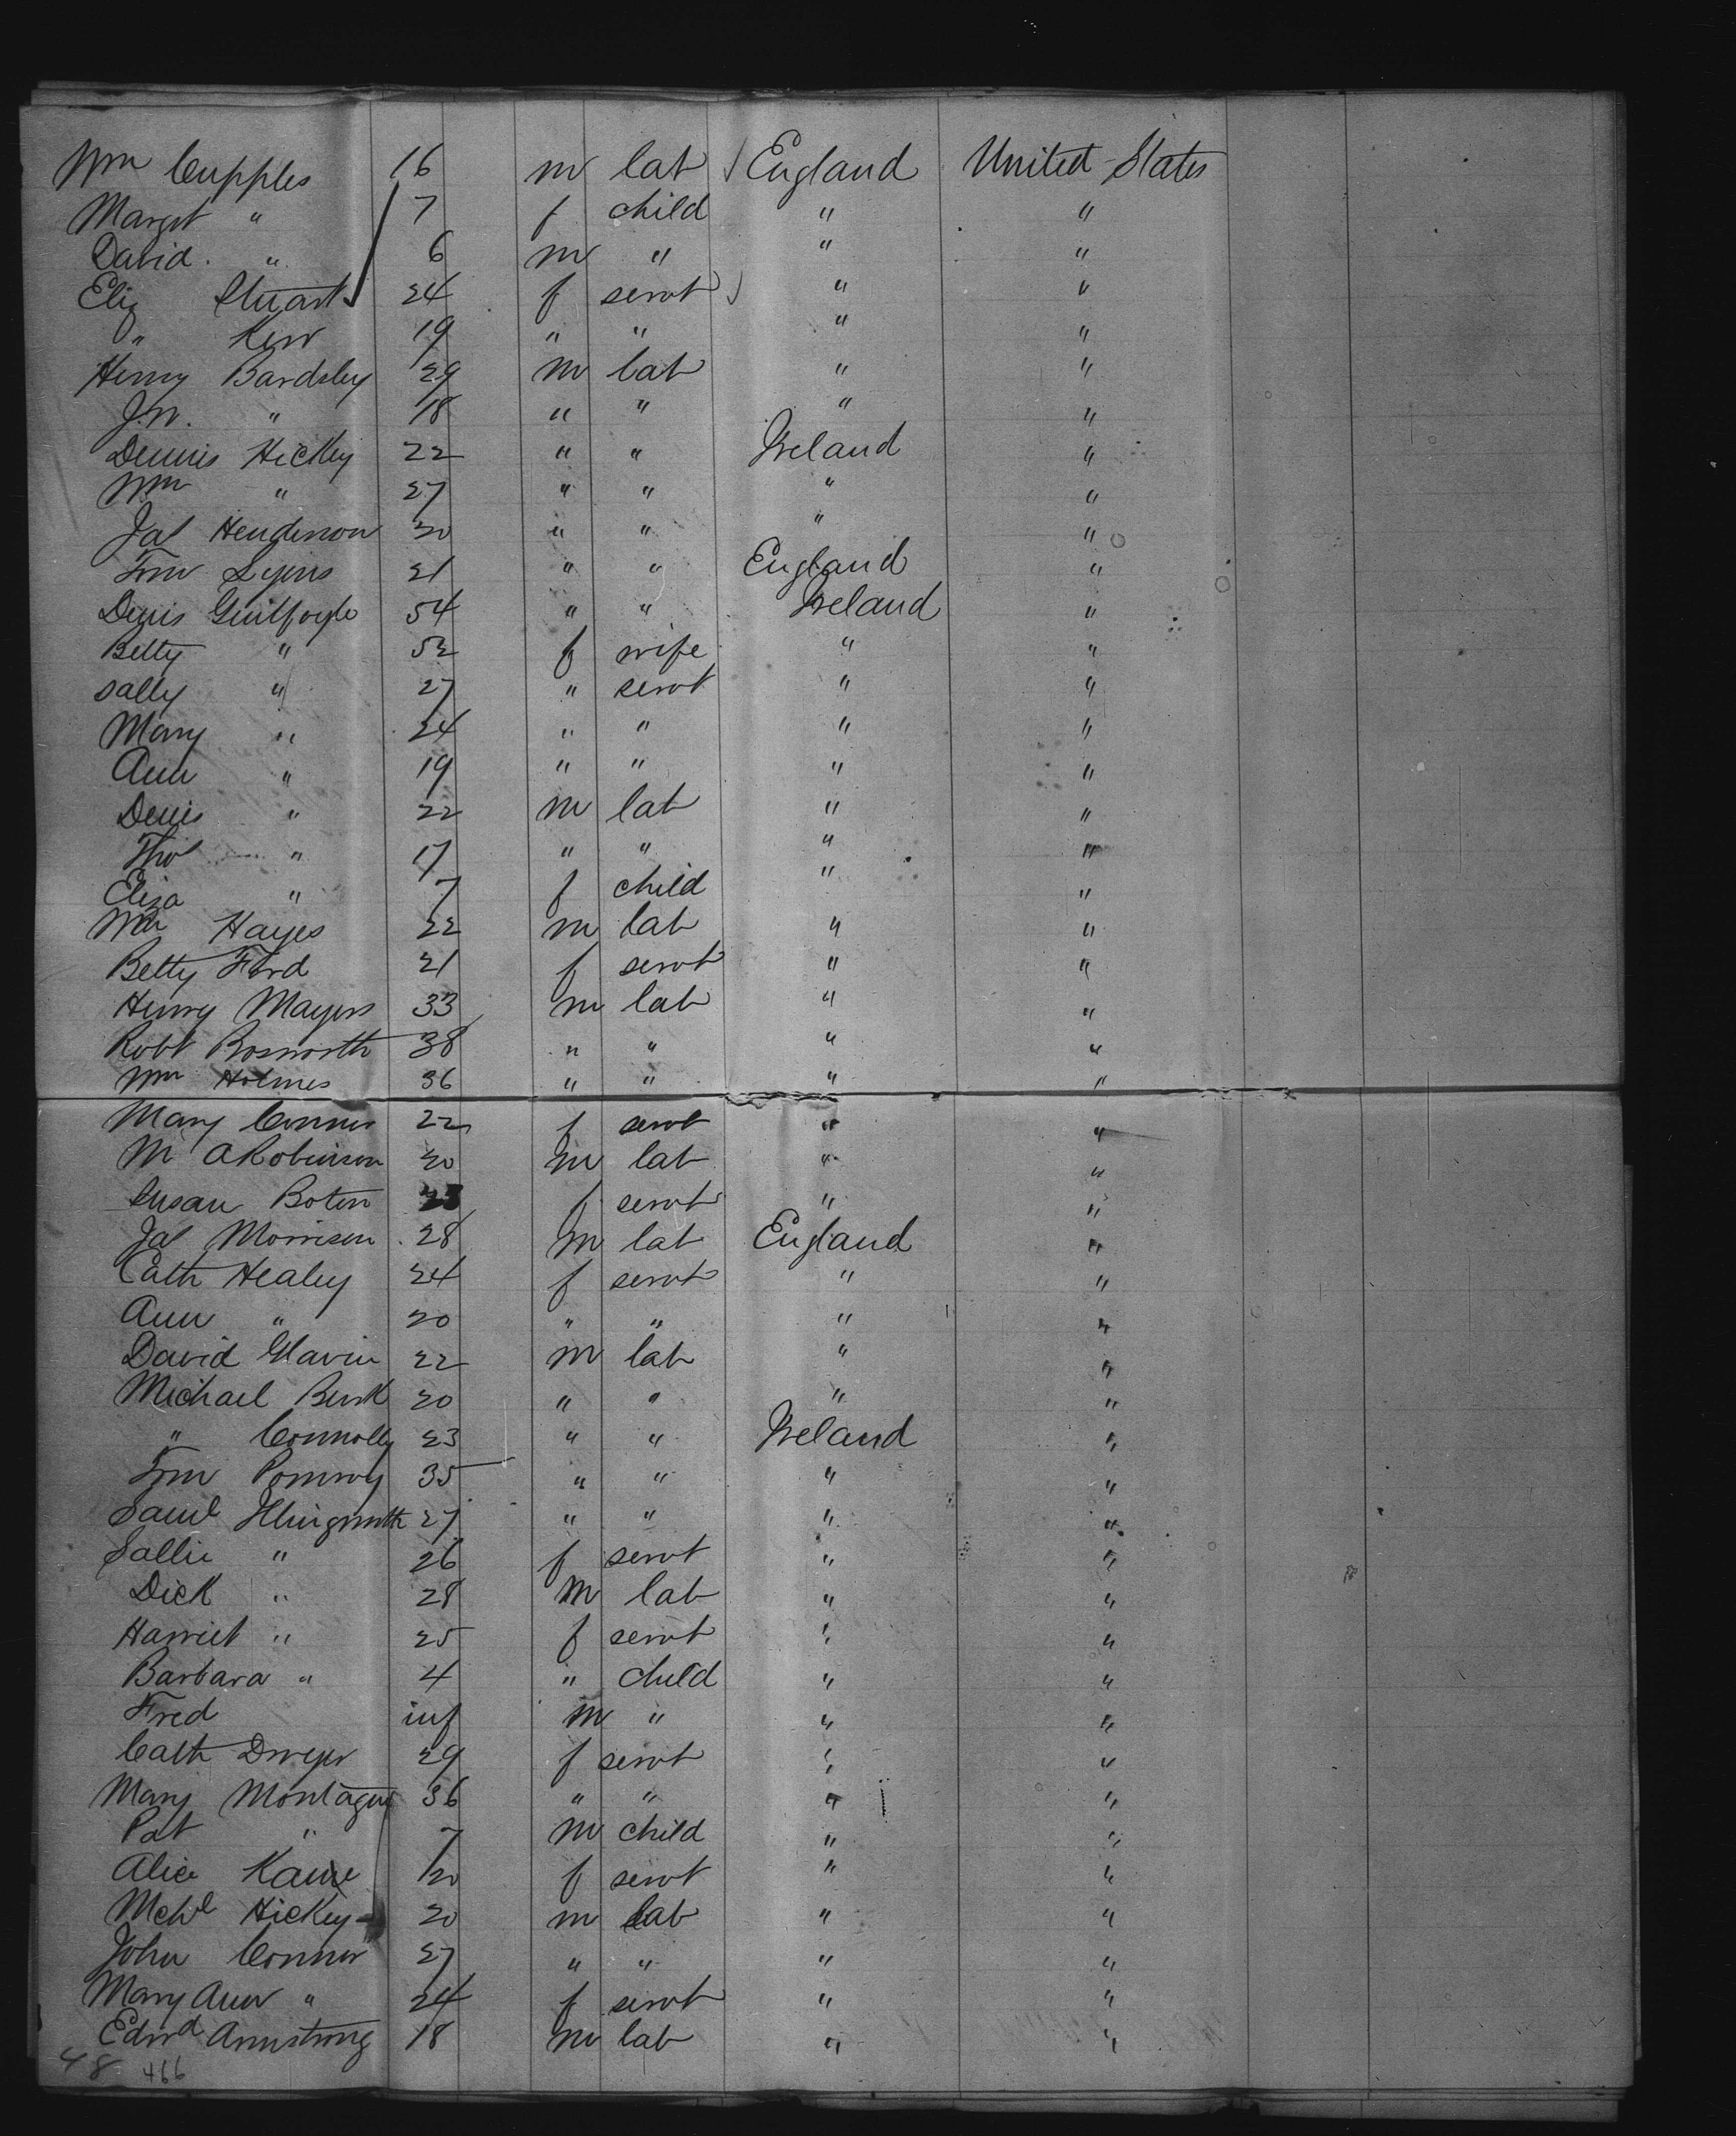 Wm Cupples 16 m lab England United States
Margt " 7 f child " "
David " 6 m " " "
Eliz Stuart 24 f servt " "
" Kerr 19 " " " "
Henry Bardsley 29 m lab " "
J.W. " 18 " " " "
Dennis Hickey 22 " " Ireland "
Wm " 27 " " " "
Jas Henderson 20 " " " "
Lyons 21 " " England "
Denis Guilfoyle 54 " " Ireland "
Betty " 52 f wife " "
Sally " 27 " servt " "
Mary " 24 " " " "
Ann " 19 " " " "
Denis " 22 m lab " "
Thos " 17 " " " "
Eliza " 7 f child " "
Wm Hayes 22 m lab " "
Betty Ford 21 f servt " "
Henry Mayers 33 m lab " "
Robt Bosworth 38 " " " "
Wm Holmes 36 " " " "
Mary Connor 22 f servt " "
M A Robinson 20 m lab " "
Susan f servt " "
Jas Morrison 28 m lab England "
Cath Healey 24 f servt " "
Ann " 20 " " " "
David Glavin 22 m lab " "
Michael Burk 20 " " " "
" Connolly 23 " " Ireland "
Pomroy 35 " " " "
Saml 27 " " " "
Sallie " 26 f servt " "
Dick " 28 m lab " "
Harriet " 25 f servt " "
Barbara " 4 " child " "
Fred inf m " " "
Cath Dwyer 29 f servt " "
Mary Montague 36 " " " "
Pat " 7 m child " "
Alice Kane 20 f servt " "
Mchl Hickey 20 m lab " "
John Connor 27 " " " "
Mary Ann " 24 f servt " "
Edwd Armstrong 18 m lab " "
48 466